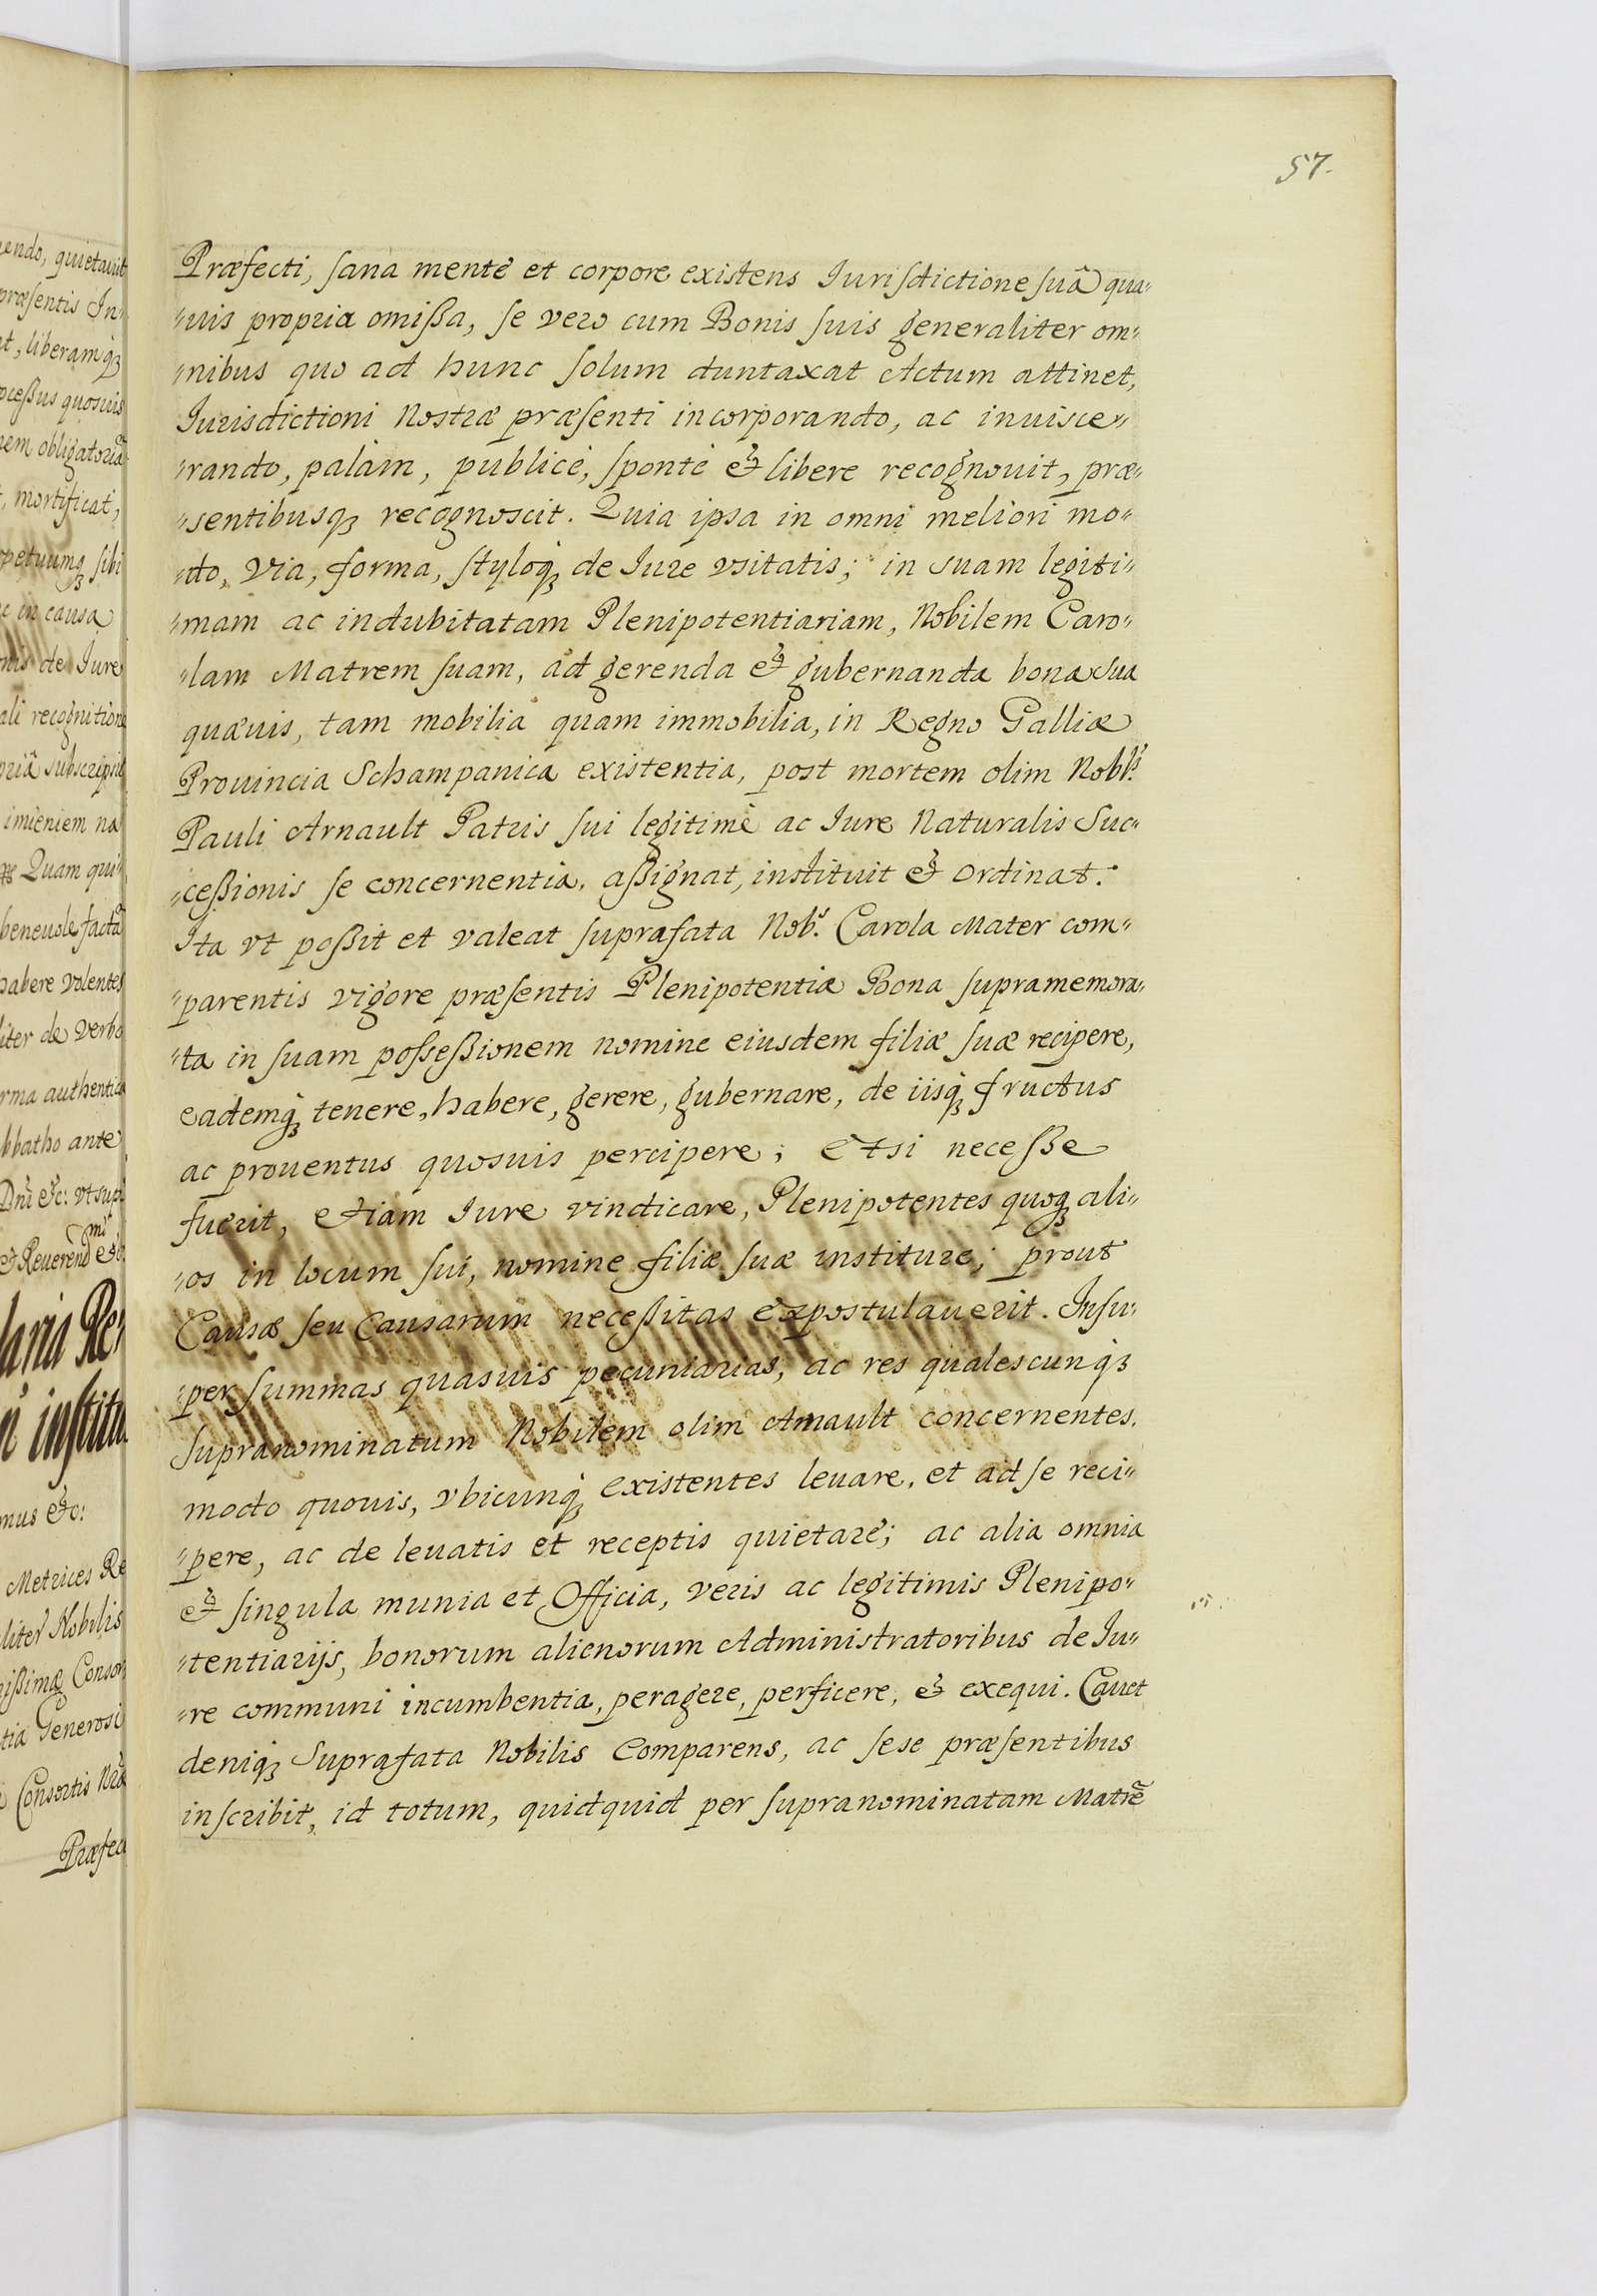 57.
Præfecti, sana mente et corpore existens Jurisdictione suâ qua„
„uis propria omißa, se vero cum Bonis suis generaliter om„
„nibus quo ad hunc solum duntaxat Actum attinet,
Jurisdictioni Nostræ præsenti incorporando, ac inuisce„
„rando, palàm, publicè, spontè & libere recognouit, præ„
„sentibusq recognoscit. Quia ipsa in omni meliori mo„
„do, Via, forma, styloq de Jure vsitatis; in suam legiti„
„mam ac indubitatam Plenipotentiariam, Nobilem Caro„
„lam Matrem suam, ad gerenda & gubernanda bona sua
quævis, tam mobilia quam immobilia, in Regno Galliæ
Prouincia Schampanica existentia, post mortem olim Nobls
Pauli Arnault Patris sui legitimè ac Jure Naturalis Suc„
„ceßionis se concernentia, aßignat, instituit & ordinat.
Ita vt poßit et valeat suprafata Nob.s Carola Mater com„
„parentis vigore præsentis Plenipotentiæ Bona supramemora„
„ta in suam posseßionem nomine eiusdem filiæ suæ recipere,
eademq tenere, habere, gerere, gubernare, de iisq fructus
ac prouentus quosuis percipere; Et si neceße
fuerit, etiam Jure vindicare, Plenipotentes quoq ali„
„os in locum sui, nomine filiæ suæ instituere; prout
Causæ seu Causarum neceßitas expostulauerit. Insu„
„per summas quasuis pecuniarias, ac res qualescunq
supranominatum Nobilem olim Arnault concernentes,
modo quouis, vbicunq existentes leuare, et ad se reci„
„pere, ac de leuatis et receptis quietare; ac alia omnia
& singula munia et Officia, veris ac legitimis Plenipo„
„tentiarijs, bonorum alienorum Administratoribus de Ju„
„re communi incumbentia, peragere, perficere, & exequi. Cauet
deniq Suprafata Nobilis Comparens, ac sese præsentibus
inscribit, id totum, quidquid per supranominatam Matrẽ